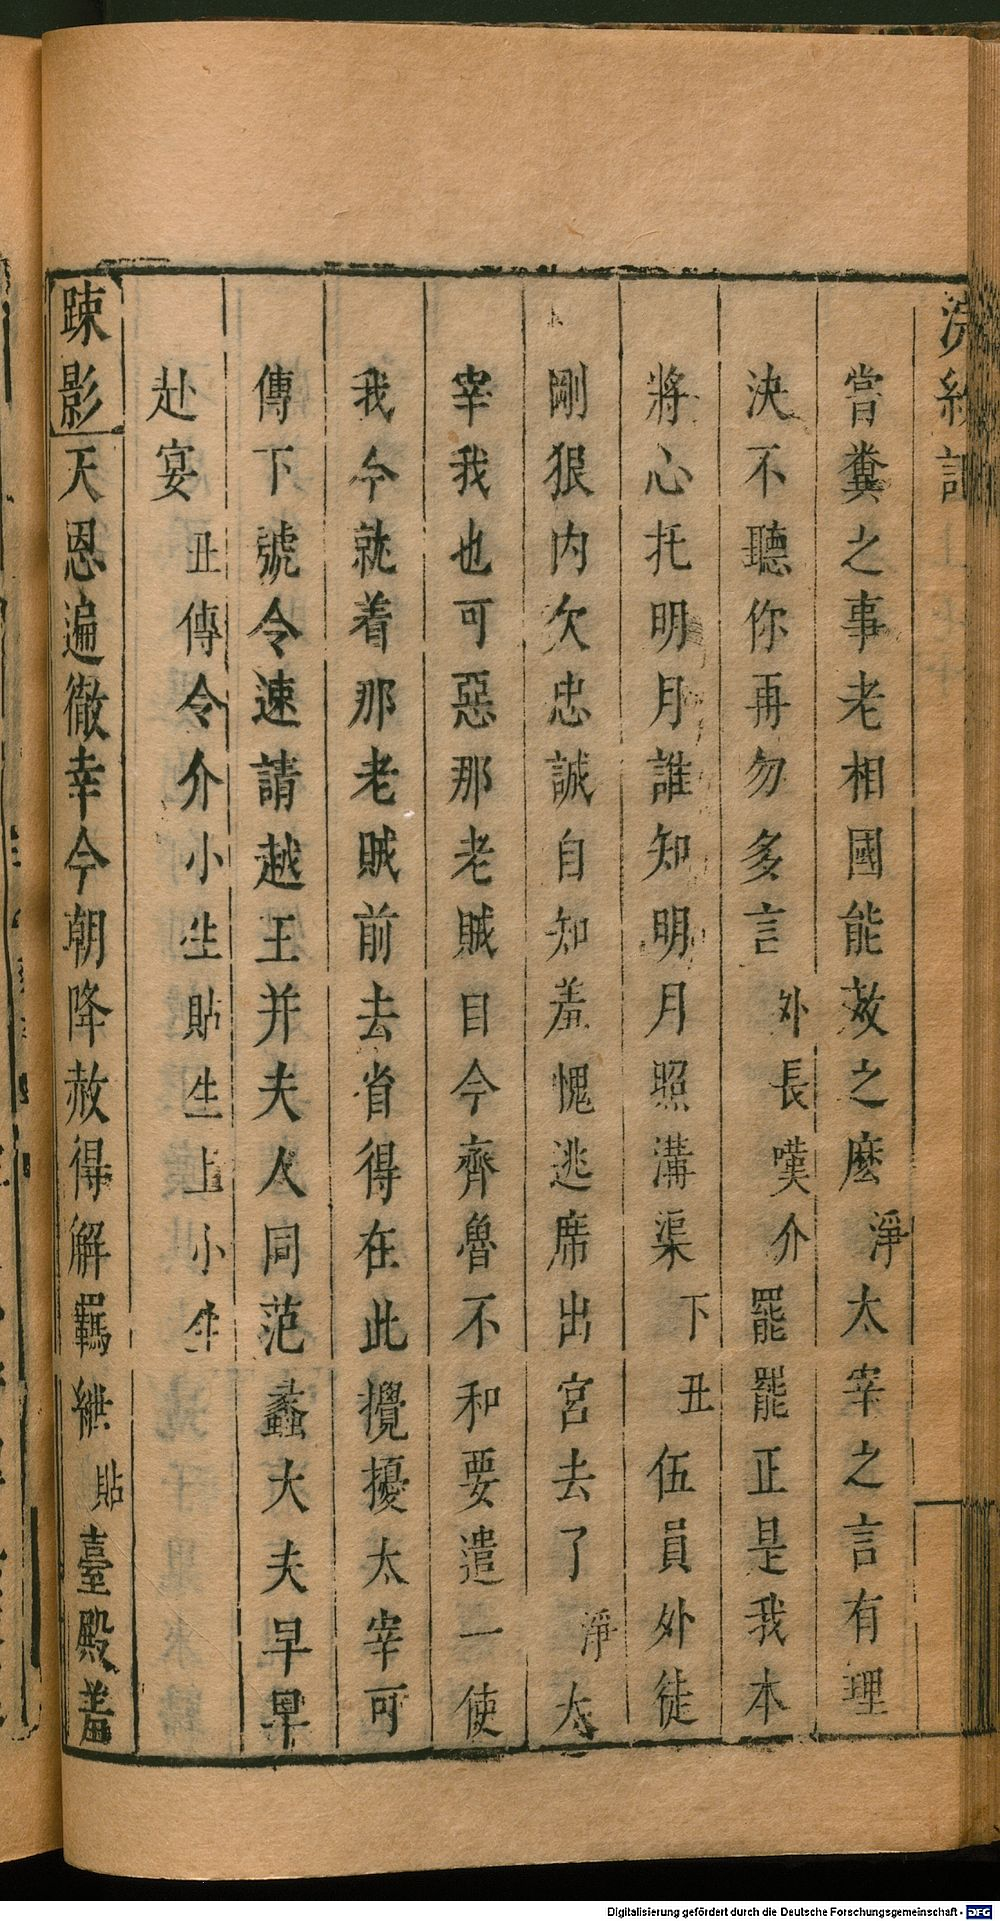 浣紗記
嘗糞之事老相國能效之麽淨太宰之言有理
決不聽你再勿多言外長嘆介罷罷正是我本
將心托明月誰知明月照溝渠下丑伍員外徒
剛狠內欠忠誠自知羞愧逃席出宮去了淨太
宰我也可惡那老賊目今齊魯不和要遣一使
我今就着那老賊前去省得在此攪擾太宰可
傳下號令速請越王并夫人同范蠡大夫早早
赴宴丑傳令介小生貼生上小生
踈影天恩遍徹幸今朝降赦得解羈紲貼臺殿羞
Digitalisierung gefördert durch die Deutsche Forschungsgemeinschaft - DFG